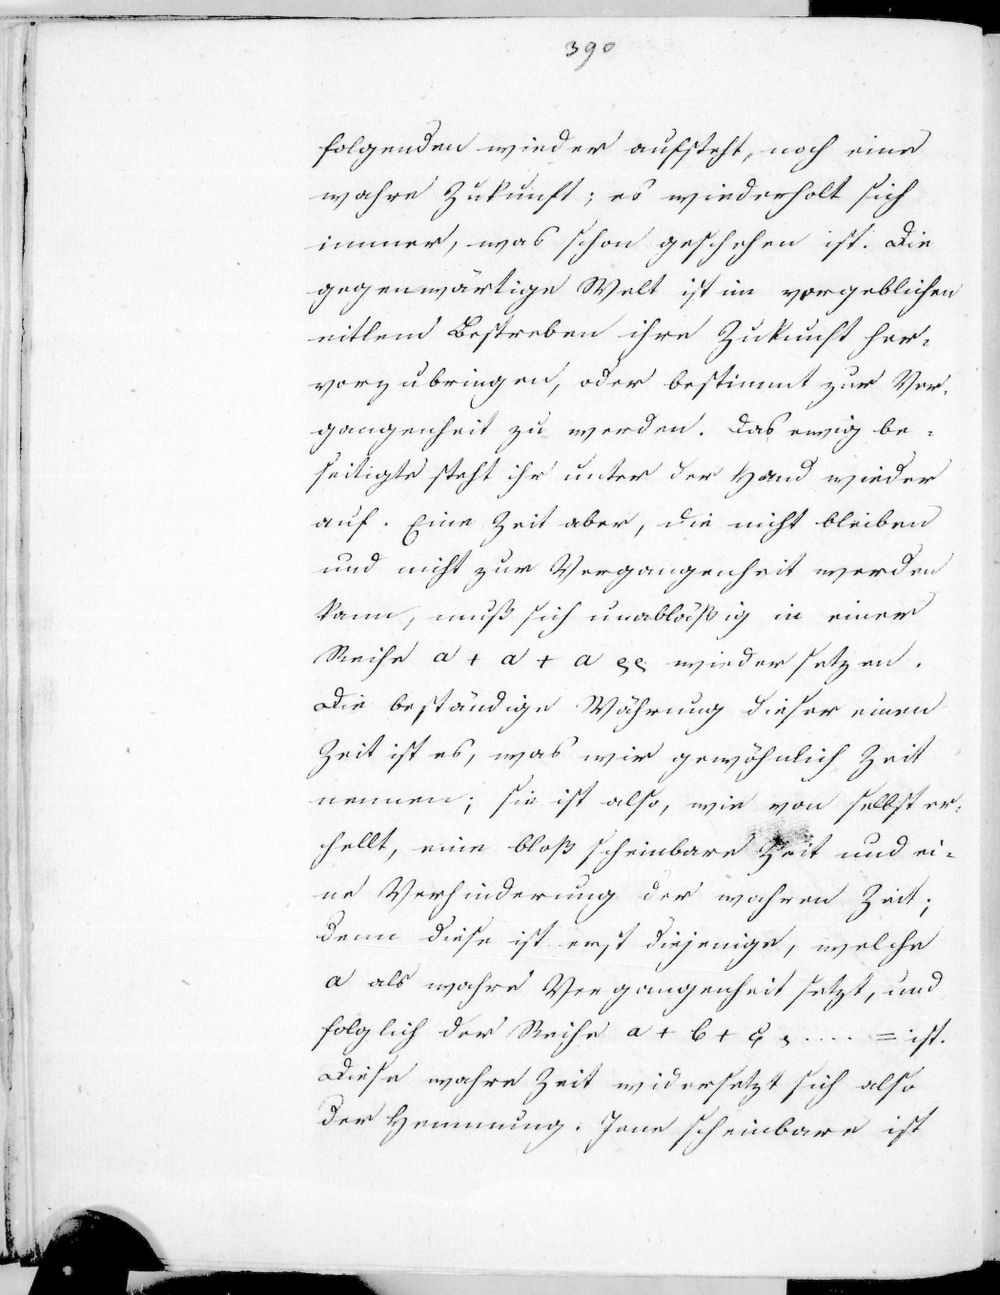 390
folgenden wieder aufsteht, noch eine
wahre Zukunft; es wiederholt sich
immer, was schon geschehen ist. Die
gegenwärtige Welt ist im vergeblichen
eitlem Bestreben ihre Zukunft her-
vorzubringen, oder bestimmt zur Ver-
gangenheit zu werden. Das ewig be-
seitigte steht ihr unter der Hand wieder
auf. Eine Zeit aber, die nicht bleiben
und nicht zur Vergangenheit werden
kann, muß sich unabläßig in einer
Reihe a + a + a wieder setzen.
Die beständige Währung dieser einen
Zeit ist es, was wir gewöhnlich Zeit
nennen; sie ist also, wie von selbst er-
hellt, eine bloß scheinbare Zeit und ei-
ne Verhinderung der wahren Zeit;
denn diese ist erst diejenige, welche
a als wahre Vergangenheit setzt, und
folglich der Reihe a + b + c .... = ist.
Diese wahre Zeit widersetzt sich also
der Hemmung. Jene scheinbare ist